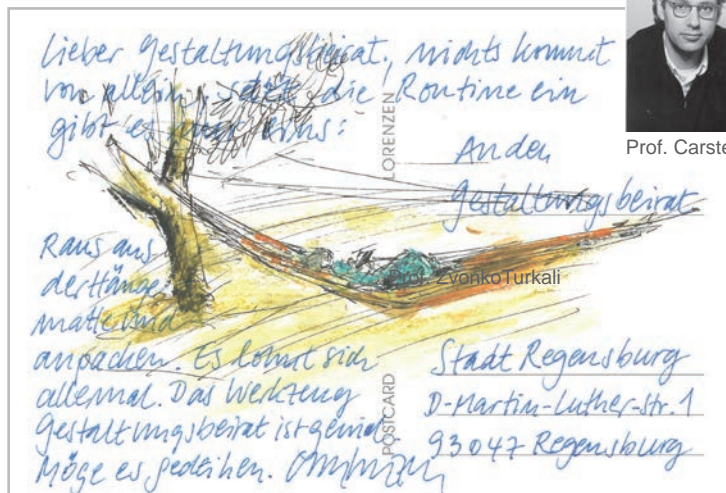 Lieber Gestaltungsbeirat, nichts kommt
von allein, setzt die Routine ein
gibt es nur eins:
Raus aus
der Hänge-
matte und
anpacken. Es lohnt sich
allemal. Das Werkzeug
Gestaltungsbeirat ist genial.
Möge es gedeihen.
LORENZEN
POSTCARD
An den
Gestaltungsbeirat
Stadt Regensburg
D-Martin-Luther-Str. 1
93047 Regensburg
Prof. ZvonkoTurkali
Prof. Carste